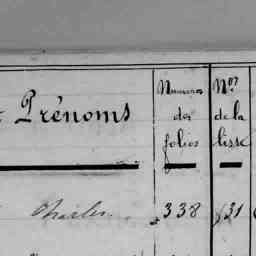 Prénoms
Numéros
des
folios
Nos
de la
liste
Charles
338
31